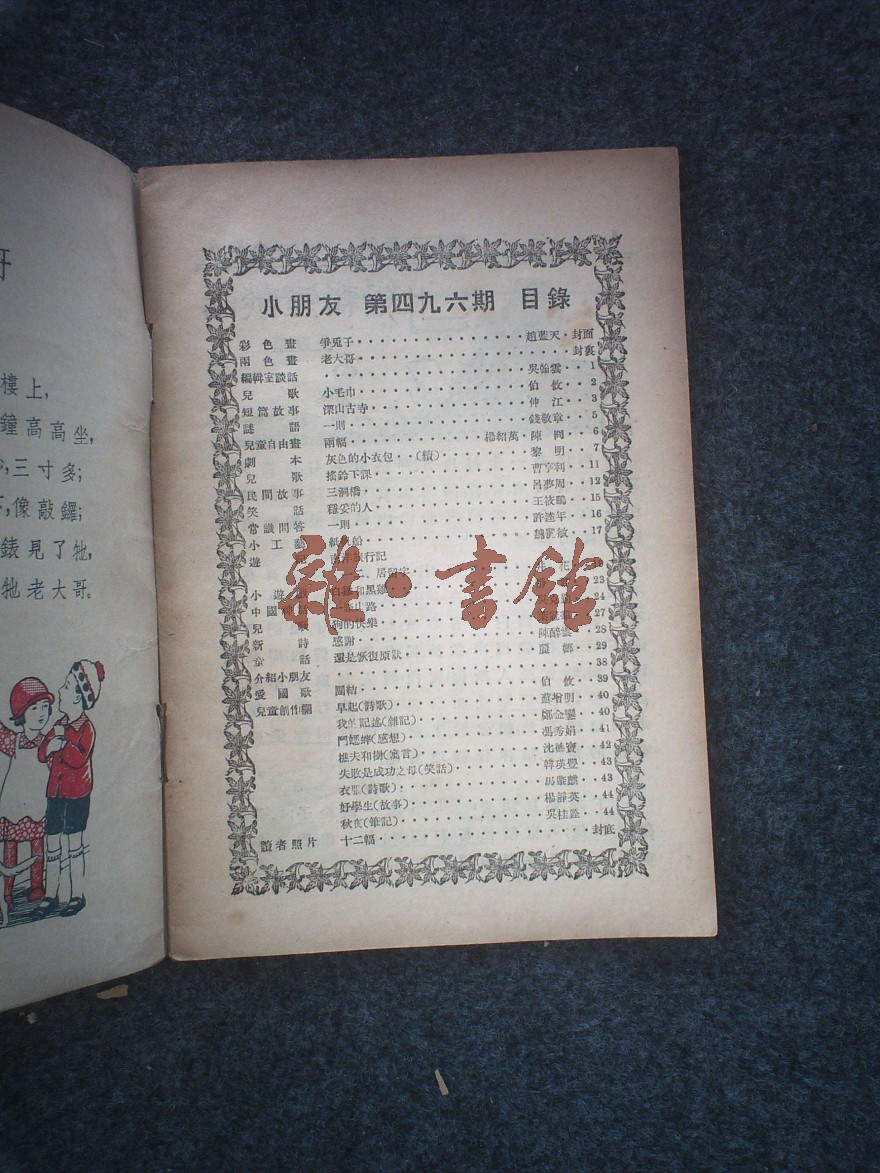 哥
樓上,
鐘高高坐,
三寸多;
像敲鑼;
錶見了牠,
牠老大哥。
小朋友 第四九六期 目錄
彩色畫 爭兎子 趙藍天 封面
兩色畫 老大哥 封裏
編輯室談話 吳翰雲 1
兒歌 小毛巾 伯攸 2
短篇故事 深山古寺 仲江 3
謎語 一則 錢敬章 5
兒童自由畫 兩幅 楊紹萬 陳岡 6
劇本 灰色的小衣包 (續) 黎明 7
兒歌 搖鈴下課 曹亨利 11
民間故事 三洞橋 呂夢周 12
笑話 穩妥的人 王筱鵬 15
常識問答 一則 許達年 16
小工藝 敏 17
遊記 行記
居留
小遊 和黑 23
中國神話 山路 24
兒歌 狗的快樂 27
新詩 感謝 陳醉雲 28
童話 還是恢復原狀 29
介紹小朋友 38
愛國歌 團結 伯攸 39
兒童創作欄 早起(詩歌) 蘇增明 40
我的記述(雜記) 鄭金 40
鬥蟋蟀(感想) 馮秀娟 41
樵夫和樹(寓言) 沈德寶 42
失敗是成功之母(笑話) 韓英豐 43
衣服(詩歌) 馬肇麒 43
好學生(故事) 楊靜英 44
秋夜(雜記) 吳桂銓 44
讀者照片 十二幅 封底
雜·書館